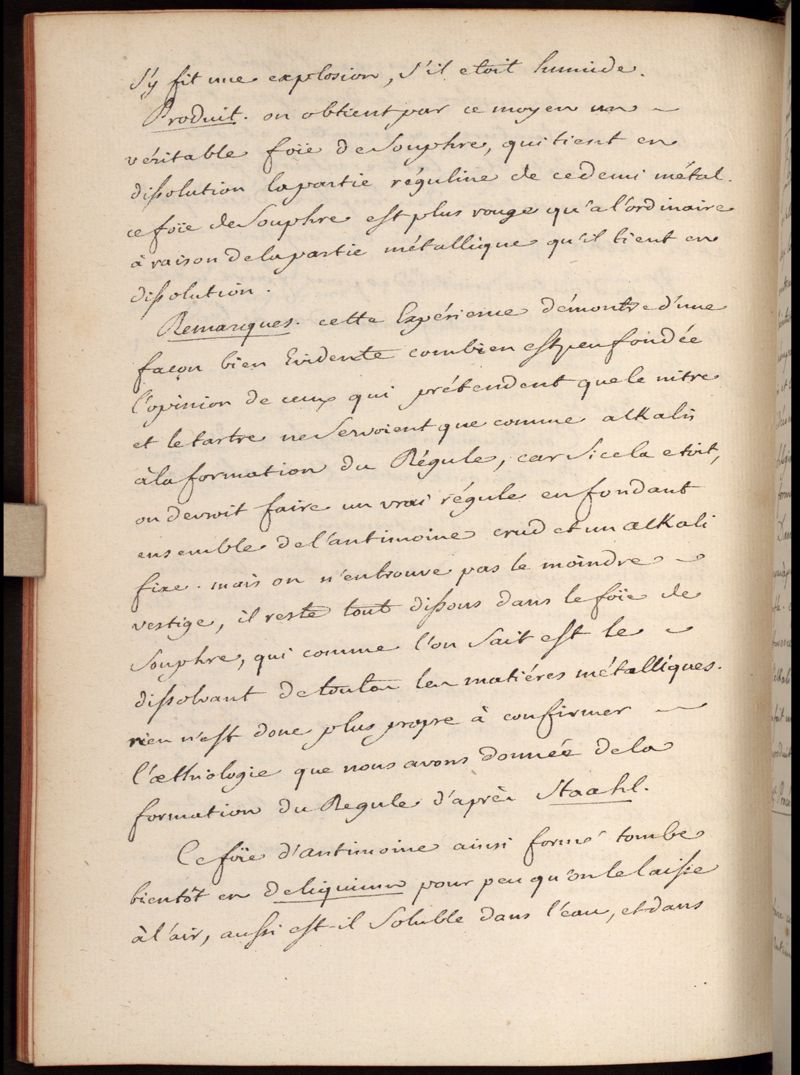 s'y fit une explosion, s'il etoit humide.
Produit. on obtient par ce moyen un ~
véritable foïe de Souphre, qui tient en
dissolution la partie réguline de ce demi métal.
ce foïe de Souphre est plus rouge qu'a l'ordinaire
à raison de la partie métallique qu'il tient en
dissolution.
Remarques. cette Expérience démontre d'une
façon bien Evidente combien est peu fondée
l'opinion de ceux qui prétendent que le nitre
et le tartre ne Servoient que comme alkalis
à la formation du Régule, car Si cela etoit,
on devroit faire un vrai régule en fondant
ensemble de l'antimoine crud et un alkali
fixe. mais on n'en trouve pas le moindre ~
vestige, il reste tout dissous dans le foïe de
Souphre, qui comme l'on Sait est le ~
dissolvant de toutes les matiéres métalliques.
rien n'est donc plus propre à confirmer ~
l'œthiologie que nous avons donnée de la
formation du Regule d'après Staahl.
Ce foïe d'antimoine ainsi formé tombe
bientôt en deliquium pour peu qu'on le laisse
à l'air, aussi est-il Soluble dans l'eau, et dans